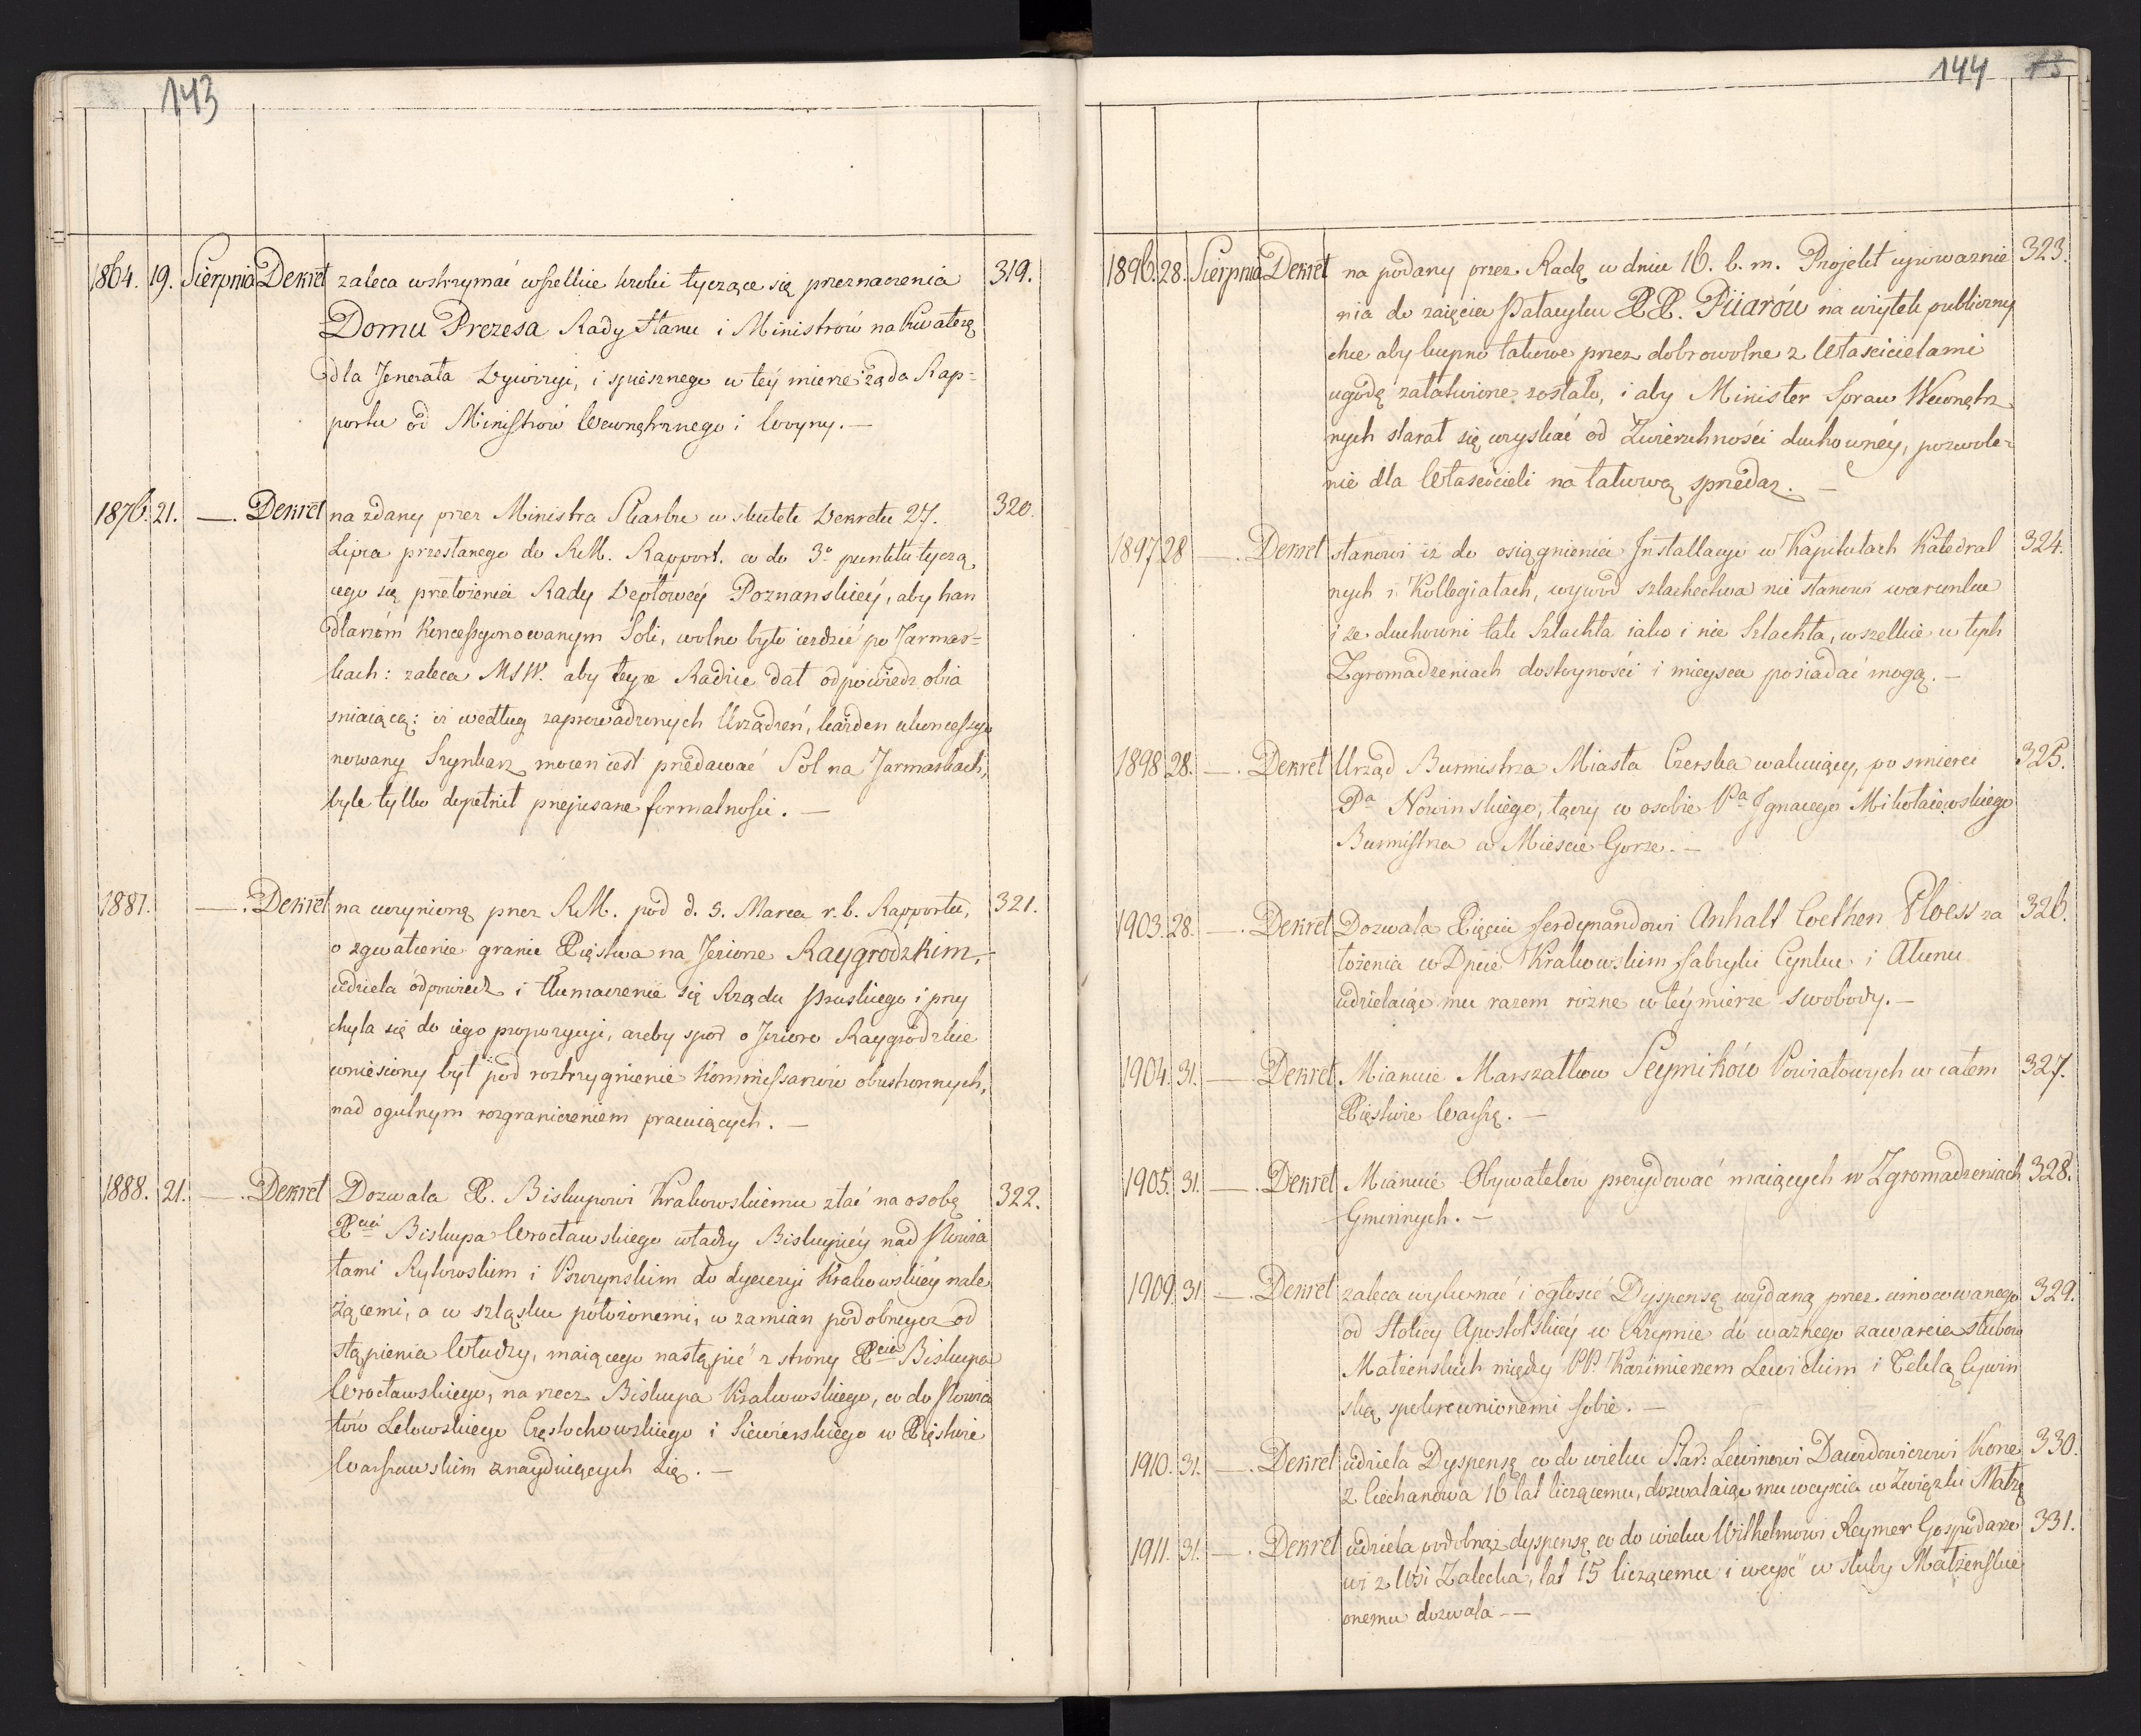 143
1864. 19. Sierpnia Dekret zaleca wstrzymać wszelkie kroki tyczące się przeznaczenia 319.
Domu Prezesa Rady Stanu i Ministrów na Kwaterę
dla Jenerała Dywizyi, i spiesznego w tey mierze żąda Rap-
portu od Ministrów Wewnętrznego i Woyny. —
1876. 21. —. Dekret na zdany przez Ministra Skarbu w skutek Dekretu 27. 320.
Lipca przesłanego do RM. Rapport. co do 3o punktu tyczą
cego się przełożenia Rady Deptowéy Poznanskiéy, aby han
dlarzóm koncessyonowanym Soli, wolno było ieździć po Jarmar-
kach: zaleca MSW. aby teyże Radzie dał odpowiedz obia
sniaiącą: iż według zaprowadzonych Urządzeń, każden ukoncessyo
nowany Szynkarz mocen iest przedawać Sol na Jarmarkach,
byle tylko dopełnił przepisane formalności. —
1881. —. Dekret na uczynioną przez RM. pod d. 5. Marca r. b. Rapportu, 321.
o zgwałcenie granic Xięstwa na Jeziorze Raygrodzkim,
udziela odpowiedz i tłumaczenie się Rządu Pruskiego i przy
chyla się do iego propozycyi, ażeby spor o Jezioro Raygrodzkie
wniesiony był pod roztrzygnienie Kommissarzów obustronnych,
nad ogulnym rozgraniczeniem pracuiących. —
1888. 21. —. Dekret Dozwala X. Biskupowi Krakowskiemu zlać na osobę 322.
Xcia Biskupa Wrocławskiego władzy Biskupiéy nad Powia
tami Bytomskim i Pszczynskim do dyecezyi Krakowskiéy nale
żącemi, a w szląsku położonemi, w zamian podobnegoż od
stąpienia Władzy, maiącego nastąpić z strony Xcia Biskupa
Wrocławskiego, na rzecz Biskupa Krakowskiego, co do Powia
tów Lelowskiego Częstochowskiego i Siewierskiego w Xięstwie
Warszawskim znayduiących się. —
144 73
1896. 28. Sierpnia Dekret na podany przez Radę w dniu 16. b. m. Projekt upoważnie 323.
nia do zaięcia Pałacyku XX. Piiarów na użytek publiczny
chce aby kupno takowe przez dobrowolne z Właścicielami
ugodę załatwione zostało, i aby Minister Spraw Wewnętrz
nych starał się uzyskać od Zwierzchności duchownéy, pozwole-
nie dla Właścicieli na takową sprzedaz. —
1897 28 —. Dekret stanowi iż do osiągnienia Installacyi w Kapitułach Katedral 324.
nych i Kollegiatach, wywod szlachectwa nie stanowi warunku
i że duchowni tak Szlachta iako i nie Szlachta, wszelkie w tych
Zgromadzeniach dostoyności i mieysca posiadać mogą. —
1898 28. —. Dekret Urząd Burmistrza Miasta Czerska wakuiący, po smierci 325.
Pa Nowinskiego, łączy w osobie Pa Ignacego Mikołaiewskiego
Burmistrza w Miescie Gorze. —
1903. 28. —. Dekret Dozwala Xięciu Ferdynandowi Anhalt Coethen Ploess za 326.
łożenia w Dpcie Krakowskim fabryki Cynku i Ałunu
udzielaiąc mu razem rożne w téy mierze swobody. —
1904. 31. —. Dekret Mianuie Marszałkow Seymików Powiatowych w całem 327.
Xięstwie Warszą. —
1905. 31. —. Dekret Mianuie Obywatelów prezydować maiących w Zgromadzeniach 328.
Gminnych. —
1909. 31. —. Dekret zaleca wykonać i ogłosić Dyspensę wydaną przez umocowanego 329.
od Stolicy Apostolskiéy w Rzymie do ważnego zawarcia słubow
Małżenskich między PP. Kazimierzem Lewickim i Teklą
ską spokrewnionemi sobie. —
1910. 31. —. Dekret udziela Dyspensę co do wieku Star: Lewinowi Dawidowiczowi Kone 330.
z Ciechanowa 16 lat liczącemu, dozwalaiąc mu weyscia w Związki Małżę
1911. 31. —. Dekret udziela podobnąż dyspensę co do wieku Wilhelmowi Reymer Gospodarzo 331.
wi z Wsi Zalecha, lat 15 liczącemu i weyść w słuby Małżenskie
onemu dozwala. —